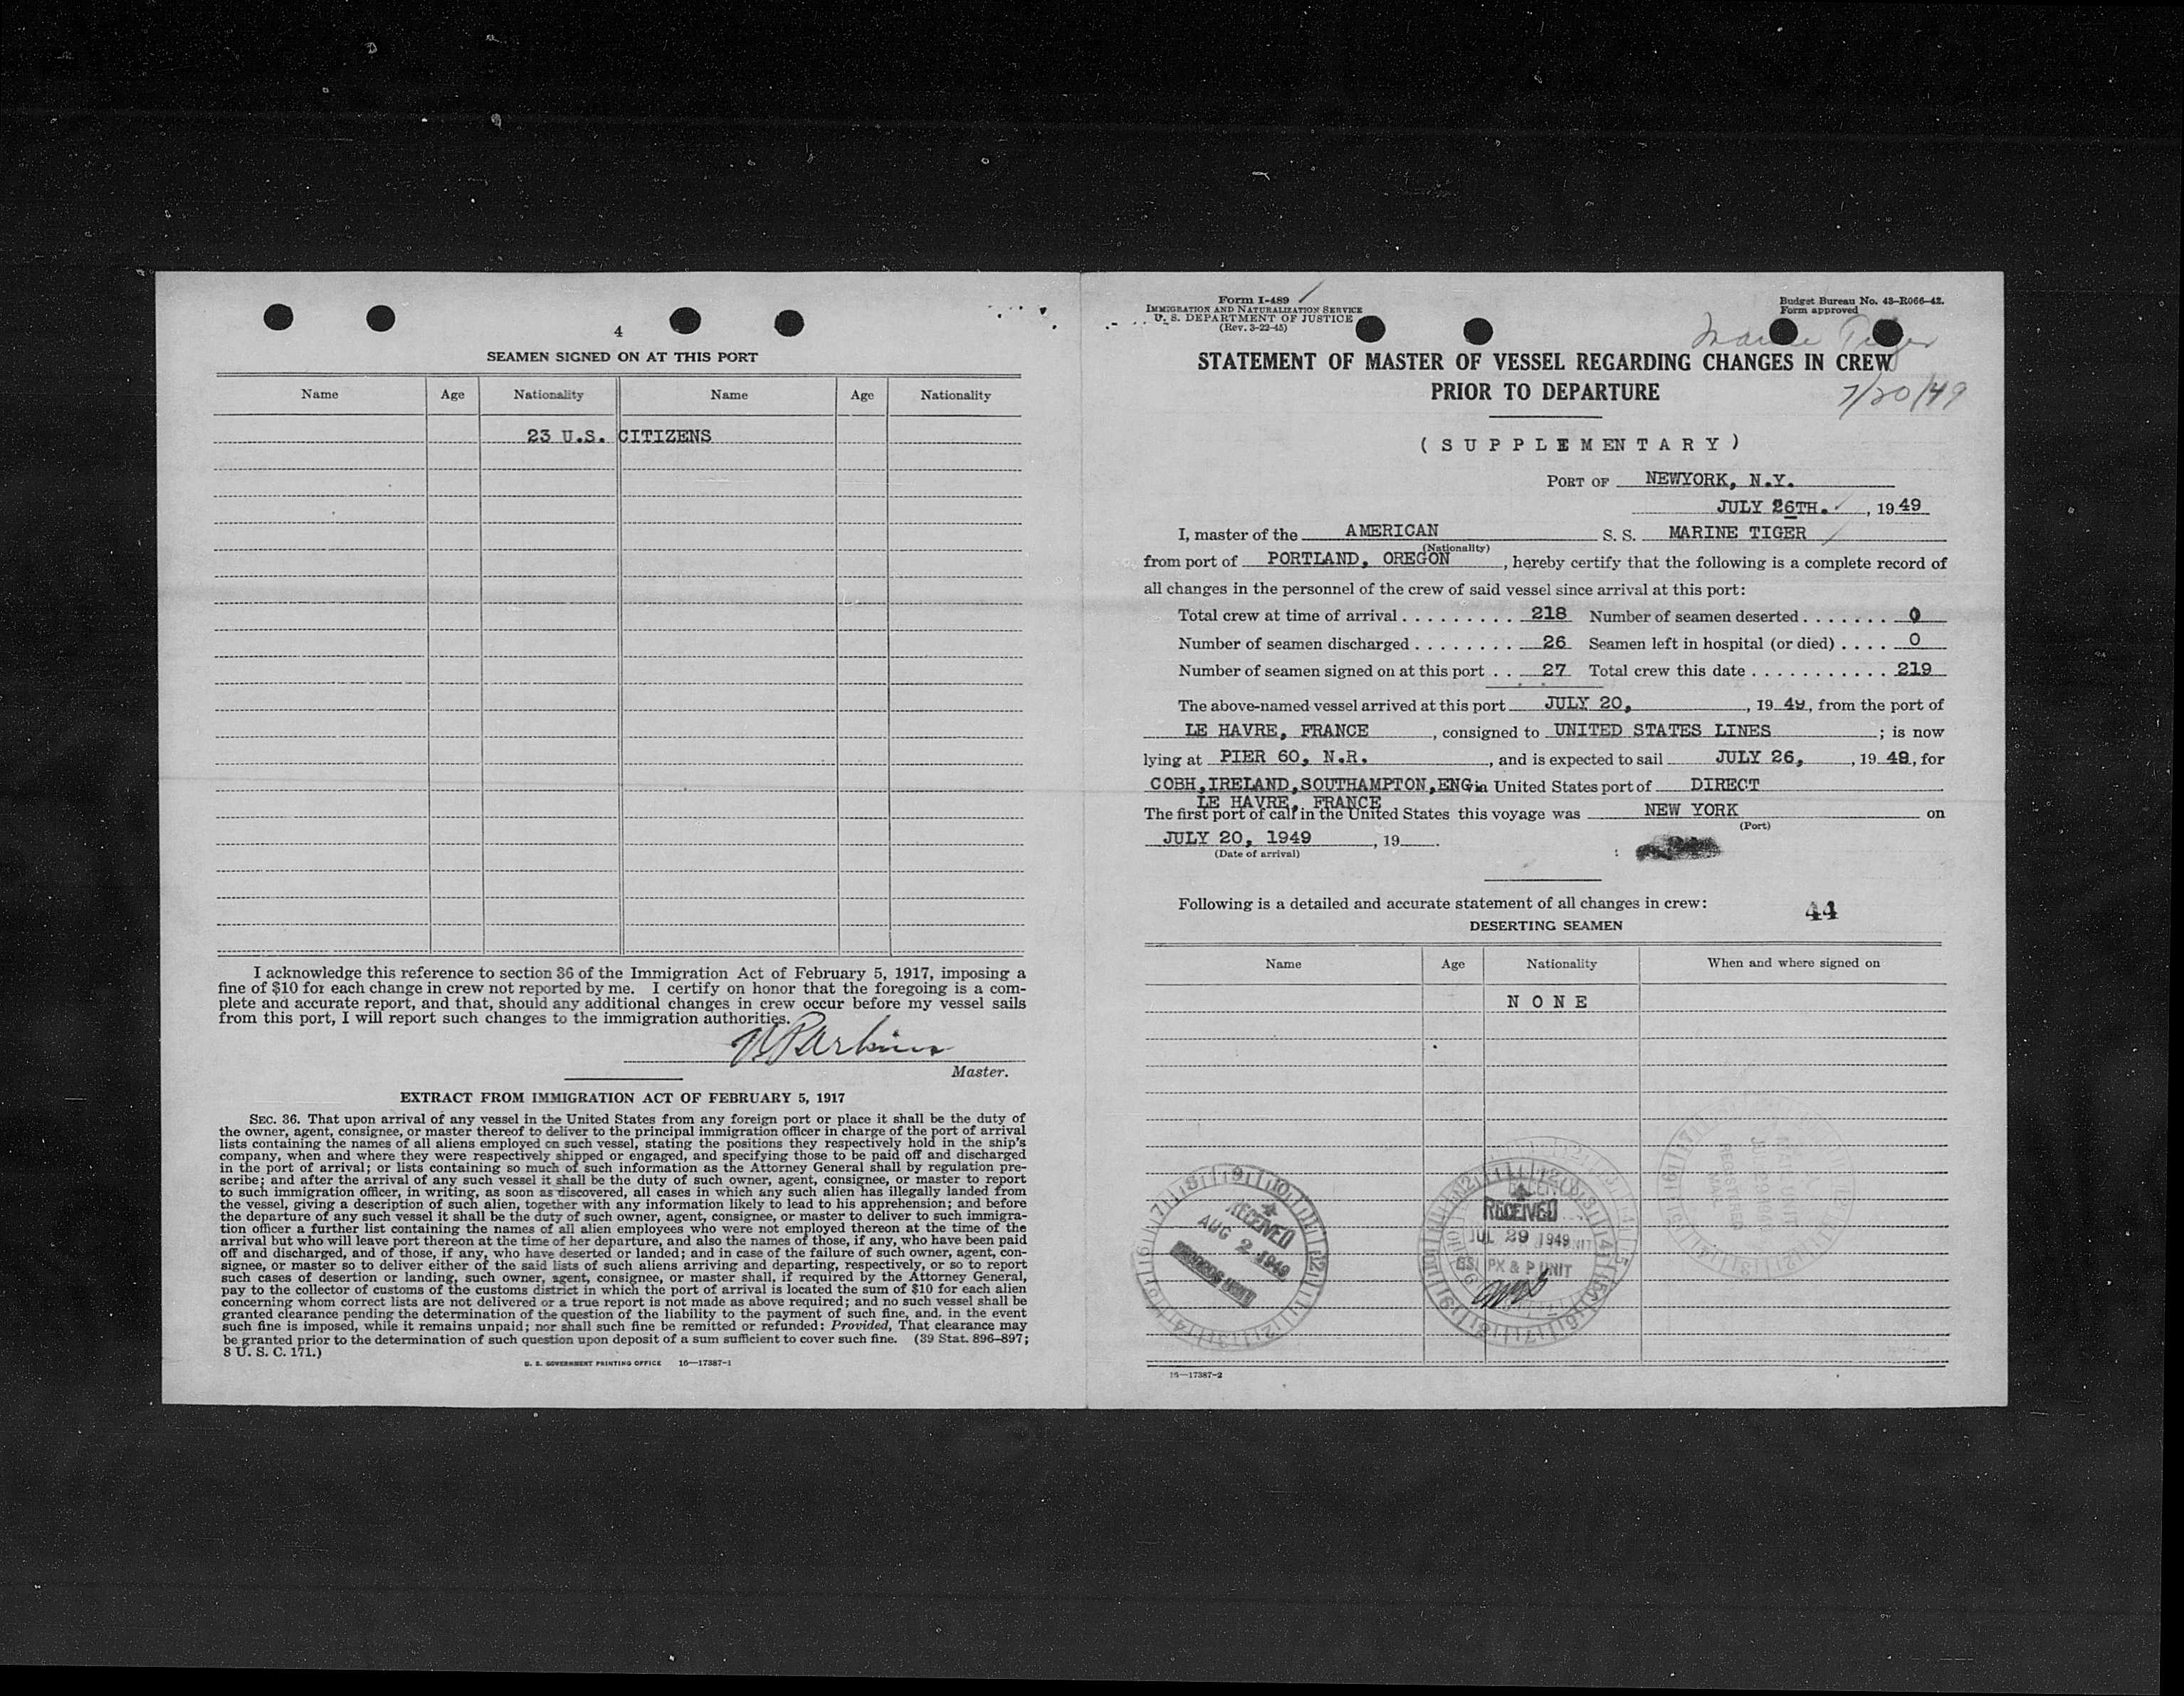 4
SEAMEN SIGNED ON AT THIS PORT
Name Age Nationality Name Age Nationality
23 U.S. CITIZENS
I acknowledge this reference to section 36 of the Immigration Act of February 5, 1917, imposing a
fine of $10 for each change in crew not reported by me. I certify on honor that the foregoing is a com-
plete and accurate report, and that, should any additional changes in crew occur before my vessel sails
from this port, I will report such changes to the immigration authorities.
Parkins
Master.
EXTRACT FROM IMMIGRATION ACT OF FEBRUARY 5, 1917
SEC. 36. That upon arrival of any vessel in the United States from any foreign port or place it shall be the duty of
the owner, agent, consignee, or master thereof to deliver to the principal immigration officer in charge of the port of arrival
lists containing the names of all aliens employed on such vessel, stating the positions they respectively hold in the ship's
company, when and where they were respectively shipped or engaged, and specifying those to be paid off and discharged
in the port of arrival; or lists containing so much of such information as the Attorney General shall by regulation pre-
scribe; and after the arrival of any such vessel it shall be the duty of such owner, agent, consignee, or master to report
to such immigration officer, in writing, as soon as discovered, all cases in which any such alien has illegally landed from
the vessel, giving a description of such alien, together with any information likely to lead to his apprehension; and before
the departure of any such vessel it shall be the duty of such owner, agent, consignee, or master to deliver to such immigra-
tion officer a further list containing the names of all alien employees who were not employed thereon at the time of the
arrival but who will leave port thereon at the time of her departure, and also the names of those, if any, who have been paid
off and discharged, and of those, if any, who have deserted or landed; and in case of the failure of such owner, agent, con-
signee, or master so to deliver either of the said lists of such aliens arriving and departing, respectively, or so to report
such cases of desertion or landing, such owner, agent, consignee, or master shall, if required by the Attorney General,
pay to the collector of customs of the customs district in which the port of arrival is located the sum of $10 for each alien
concerning whom correct lists are not delivered or a true report is not made as above required; and no such vessel shall be
granted clearance pending the determination of the question of the liability to the payment of such fine, and. in the event
such fine is imposed, while it remains unpaid; nor shall such fine be remitted or refunded: Provided, That clearance may
be granted prior to the determination of such question upon deposit of a sum sufficient to cover such fine. (39 Stat. 896–897;
8 U. S. C. 171.)
U. S. GOVERNMENT PRINTING OFFICE 16—17387-1
Form I-489
IMMIGRATION AND NATURALIZATION SERVICE
U. S. DEPARTMENT OF JUSTICE
(Rev. 3-22-45)
Budget Bureau No. 43–R066–42.
Form approved
Marine Tiger
STATEMENT OF MASTER OF VESSEL REGARDING CHANGES IN CREW
PRIOR TO DEPARTURE
7/20/49
(SUPPLEMENTARY)
PORT OF NEWYORK, N.Y.
JULY 26TH. , 19 49
I, master of the AMERICAN S. S. MARINE TIGER
(Nationality)
from port of PORTLAND, OREGON , hereby certify that the following is a complete record of
all changes in the personnel of the crew of said vessel since arrival at this port:
Total crew at time of arrival . . . . . . . . . 218 Number of seamen deserted . . . . . . . 0
Number of seamen discharged . . . . . . . . 26 Seamen left in hospital (or died) . . . . 0
Number of seamen signed on at this port . . 27 Total crew this date . . . . . . . . . . . . 219
The above-named vessel arrived at this port JULY 20, , 19 49, from the port of
LE HAVRE, FRANCE , consigned to UNITED STATES LINES ; is now
lying at PIER 60, N.R. , and is expected to sail JULY 26, , 19 49, for
COBH,IRELAND,SOUTHAMPTON,ENG via United States port of DIRECT
LE HAVRE, FRANCE
The first port of call in the United States this voyage was NEW YORK on
(Port)
JULY 20, 1949 , 19 .
(Date of arrival)
Following is a detailed and accurate statement of all changes in crew:
44
DESERTING SEAMEN
Name Age Nationality When and where signed on
NONE
RECEIVED
AUG 2 1949
RECEIVED
JUL 29 1949
PX & P UNIT
MAIL UNIT
REGISTERED
16—17387-2